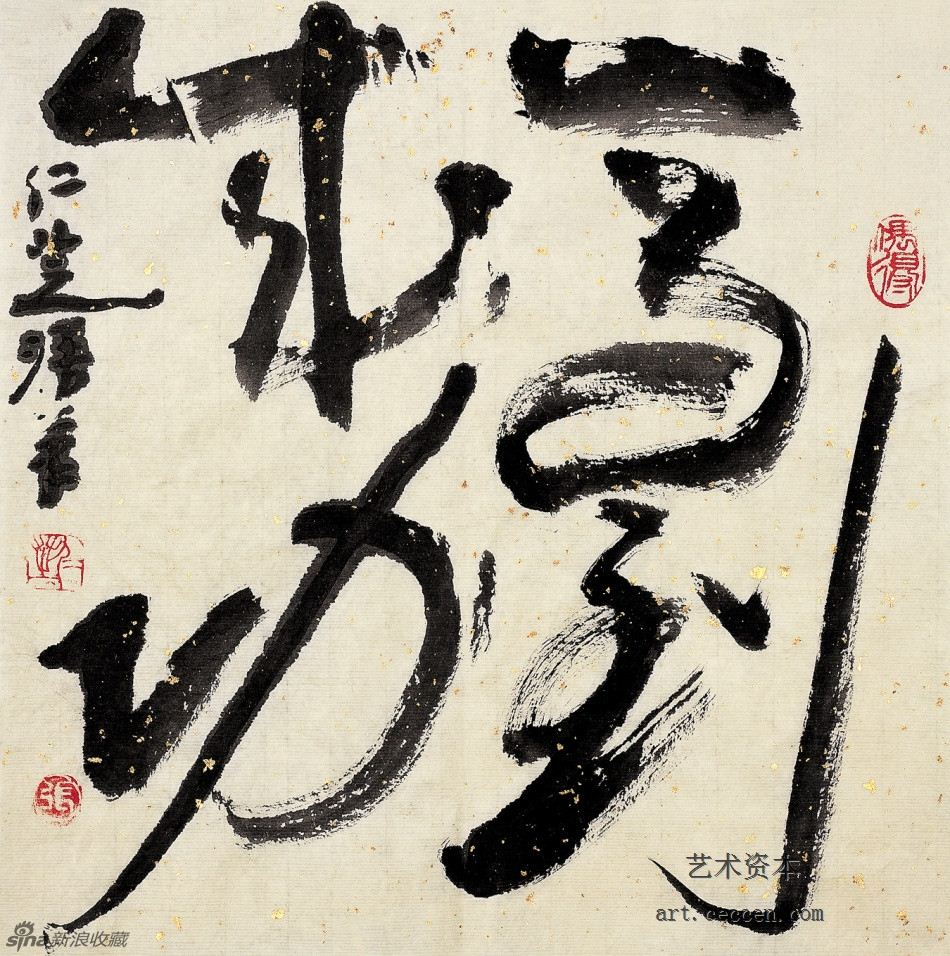 马到
成功
仁芝
张
艺术资本
art.ceccen.com
sina新浪收藏